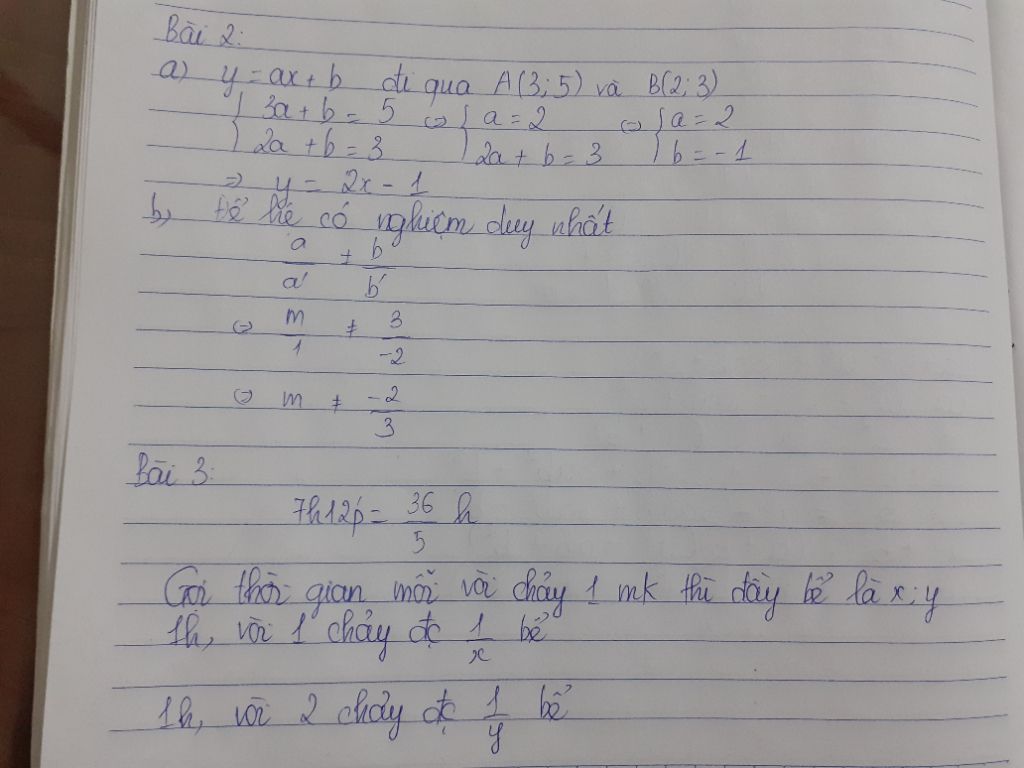 Bài 2:
a) y = ax + b đi qua A(3; 5) và B(2; 3)
{ 3a + b = 5 ⇔ { a = 2 ⇔ { a = 2
2a + b = 3 2a + b = 3 b = -1
⇒ y = 2x - 1
b, Để hệ có nghiệm duy nhất
a/a' ≠ b/b'
⇔ m/1 ≠ 3/-2
⇔ m ≠ -2/3
Bài 3:
7h12p = 36/5 h
Gọi thời gian mỗi vòi chảy 1 mk thì đầy bể là x; y
1h, vòi 1 chảy đc 1/x bể
1h, vòi 2 chảy đc 1/y bể